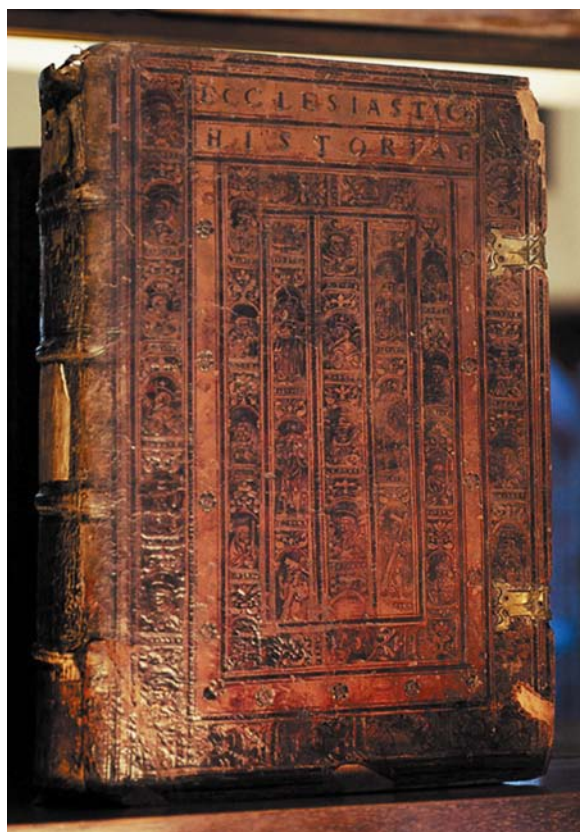 ECCLESIASTICÆ
HISTORIAE